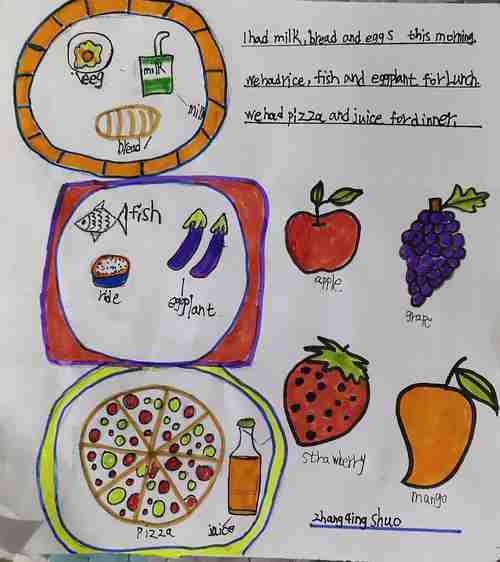 I had milk, bread and eggs this morning.
we had rice, fish and eggplant for lunch.
we had pizza and juice for dinner.
egg
milk
milk
bread
fish
rice
eggplant
apple
grape
strawberry
mango
pizza
juice
zhang qing shuo